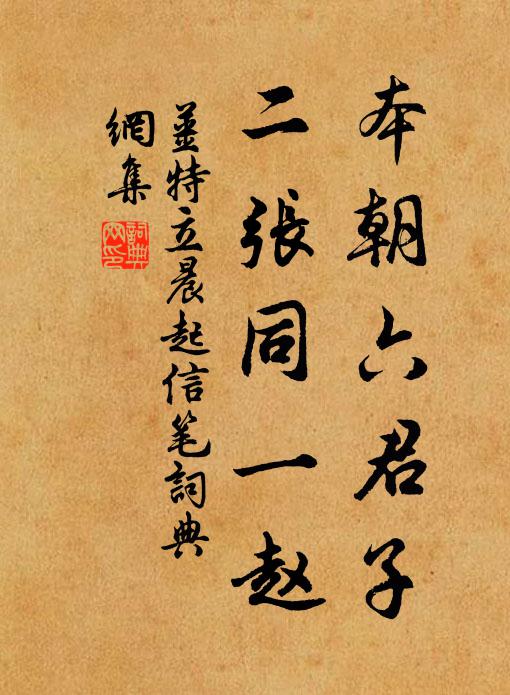 本朝六君子
二張同一赵
姜特立晨起信笔詞典
網集
詞典
网印